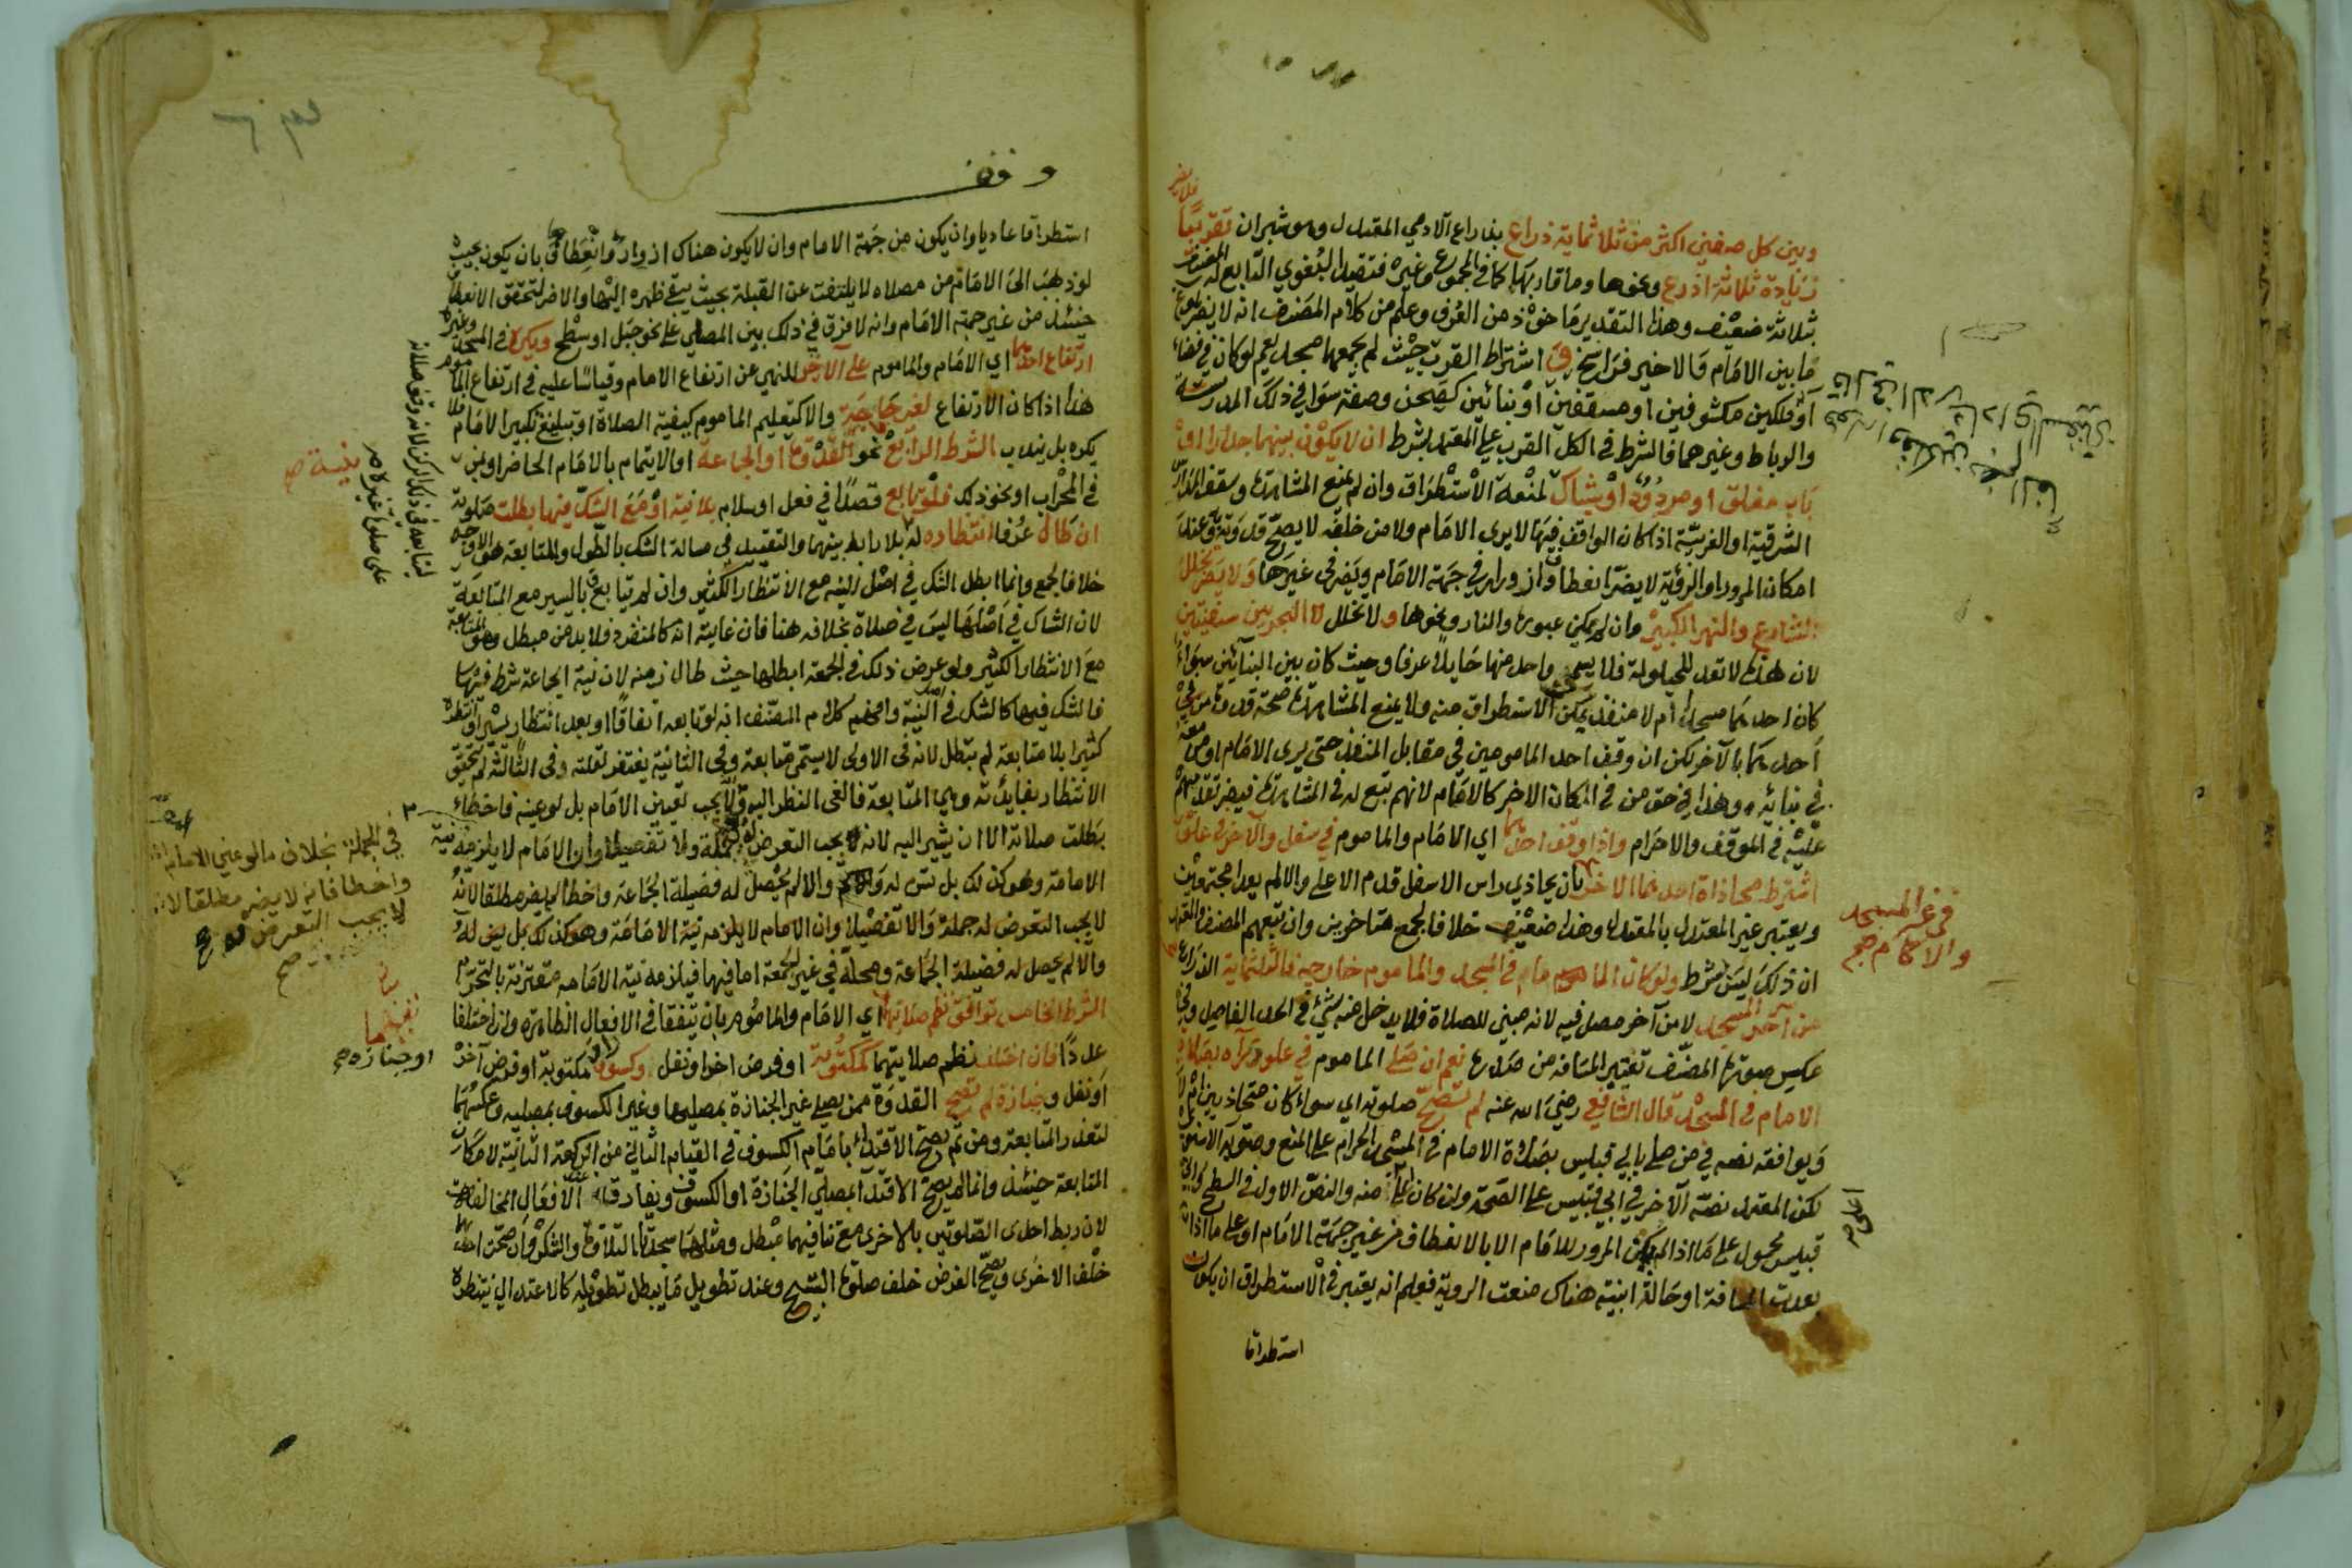 وبين كل صفين اكثر من ثلاثماية ذراع بذراع الآدمي المعتدل وهو شبران تقريبا فلا يضر
زيادة ثلاثة اذرع ونحوها وما قاربها كما في المجموع وغيره فتقييد البغوي التابع له المصنف
بثلاثة ضعيف وهذا التقدير ماخوذ من العرف وعلم من كلام المصنف انه لا يضر بلوغ
ما بين الامام والاخير فراسخ اشتراط القرب حيث لم يجمعهما مسجد يعم لو كان في فضاء
او ملكين مكشوفين او مسقفين او بنائين كصحن وصفة سوا في ذلك المدرسة
والرباط وغيرهما فالشرط في الكل القرب على المعتمد بشرط ان لا يكون بينهما جدار او
باب مغلق او مردود او شباك لمنعه الاستطراق وان لم يمنع المشاهدة وسقف المدارس
الشرقية او الغربية اذا كان الواقف فيها لا يرى الامام ولا من خلفه لا يصح قدوته وعند
امكان المرور او الرؤية لا يضر انعطاف وازورار في جهة الامام ويضر في غيرها ولا يضر تخلل
الشارع والنهر الكبير وان لم يمكن عبوره والنار ونحوها ولا تخلل البحر بين سفينتين
لان هذه لا تعد للحيلولة فلا يسمى واحد منها حايلا عرفا وحيث كان بين البنائين سواء
كان احدهما مسجدا ام لا منفذ يمكن الاستطراق منه ولا يمنع المشاهدة صحة قدوة من في
احدهما بالآخر لكن ان وقف احد المامومين في مقابل المنفذ حتى يرى الامام او من معه
في بنائه وهذا في حق من في المكان الاخر كالامام لانهم تبع له في المشاهدة فيضر تقدمهم
عليه في الموقف والاحرام واذا وقف احدهما اي الامام والماموم في سفل والآخر في علو
اشترط محاذاة احدهما الاخر بان يحاذي راس الاسفل قدم الاعلى والا لم يعدا مجتمعين
ويعتبر غير المعتدل بالمعتدل وهذا ضعيف خلافا لجمع متاخرين وان تبعهم المصنف والمعتمد
ان ذلك ليس بشرط ولو كان الامام في المسجد والماموم خارجه فالثلثماية الذراع
من آخر المسجد لا من آخر مصل فيه لانه مبني للصلاة فلا يدخل منه شيء في الحد الفاصل وفي
عكس صورة المصنف تعتبر المسافة من صدره نعم ان صلى الماموم في علو داره بصلاة
الامام في المسجد قال الشافعي رضي الله عنه لم تصح صلوته اي سواء كان متحاذيين ام لا
ويوافقه نصه في من صلى بابي قبيس بصلاة الامام في المسجد الحرام على المنع وصوبه الاسنوي
لكن المعتمد نصه الآخر في ابي قبيس على الصحة وان كان اعلى منه والنص الاول في السطح وابي
قبيس محمول على ما اذا لم يمكن المرور للامام الا بالانعطاف من غير جهة الامام او على ما اذا
بعدت المسافة او حالة ابنية هناك منعت الروية فعلم انه يعتبر في الاستطراق ان يكون
استطراقا
في غير المسجد
والاكام صح
وقف
استطراقا عاديا وان يكون من جهة الامام وان لا يكون هناك ازورار وانعطاف بان يكون بحيث
لو ذهب الى الامام من مصلاه لا يلتفت عن القبلة بحيث يبقى ظهره اليها والا ضر لتحقق الانعطاف
حينئذ من غير جهة الامام وانه لا فرق في ذلك بين المصلي على نحو جبل او سطح ويكره في المسجد وغيره
ارتفاع احدهما اي الامام والماموم على الآخر للنهي عن ارتفاع الامام وقياسا عليه في ارتفاع الماموم
هذا اذا كان الارتفاع لغير حاجة والا كتعليم الماموم كيفية الصلاة او تبليغ تكبير الامام فلا
يكره بل يندب الشرط الرابع نحو القدوة او الجماعة او الايتمام بالامام الحاضر او بمن
في المحراب او نحو ذلك فلو تابع قصدا في فعل او سلام بلا نية او مع الشك فيها بطلت صلوته
ان طال عرفا انتظاره له بلا رابط بينهما والتقييد في مسالة الشك بالطول والمتابعة هو الاوجه
خلافا لجمع وانما ابطل الشك في اصل النية مع الانتظار الكثير وان لم يتابع وباليسير مع المتابعة
لان الشاك في اصلها ليس في صلاة بخلافه هنا فان غايته انه كالمنفرد فلا بد من مبطل وهو المتابعة
مع الانتظار الكثير ولو عرض ذلك في الجمعة ابطلها حيث طال زمنه لان نية الجماعة شرط فيها
فالشك فيها كالشك في النية وافهم كلام المصنف انه لو تابعه اتفاقا او بعد انتظار يسير او انتظره
كثيرا بلا متابعة لم تبطل لانه في الاولى لا يسمى متابعة وفي الثانية يغتفر لقلته وفي الثالثة لم يتحقق
الانتظار بفائدته وهي المتابعة فالغى النظر اليه ولا يجب تعيين الامام بل لو عينه فاخطاء
بطلت صلاته الا ان يشير اليه لانه يجب التعرض له جملة ولا تفصيلا وان الامام لا يلزمه نية
الامامة وهو كذلك بل تسن له والا لم يحصل له فضيلة الجماعة واخطا لم يضر مطلقا لانه
لا يجب التعرض له جملة ولا تفصيلا وان الامام لا يلزمه نية الامامة وهو كذلك بل يسن له
والا لم يحصل له فضيلة الجماعة ومحله في غير الجمعة اما فيها فيلزمه نية الامامة مقترنة بالتحرم
الشرط الخامس توافق نظم صلاتهما اي الامام والماموم بان يتفقا في الافعال الظاهرة وان اختلفا
عددا فان اختلف نظم صلاتيهما كمكتوبة او فرض اخر او نفل وكسوف او مكتوبة او فرض آخر
او نفل وجنازة لم تصح القدوة ممن يصلي غير الجنازة بمصليها وغير الكسوف بمصليه وعكسهما
لتعذر المتابعة ومن ثم يصح الاقتداء بامام الكسوف في القيام الثاني من الركعة الثانية لامكان
المتابعة حينئذ وانما لم يصح الاقتدا بمصلي الجنازة او الكسوف ويفارقه عند الافعال المخالفة
لان ربط احدى الصلوتين بالاخرى مع تنافيهما مبطل ومثلهما سجدتا التلاوة والشكر وان صحت احداهما
خلف الاخرى ويصح الفرض خلف صلوة التسبيح وعند تطويل ما يبطل تطويله كالاعتدال ينتظره
بنية صح
في الجملة بخلاف ما لو عين الامام
واخطا فانه لا يضر مطلقا لانه
لا يجب التعرض له صح
او جنازة صح